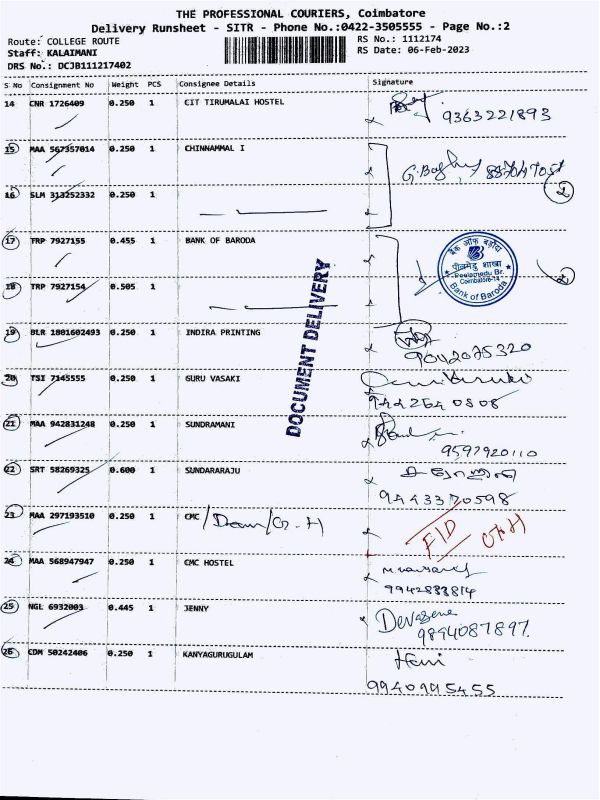 THE PROFESSIONAL COURIERS, Coimbatore
Delivery Runsheet - SITR - Phone No.:0422-3505555 - Page No.:2
Route: COLLEGE ROUTE RS No.: 1112174
Staff: KALAIMANI RS Date: 06-Feb-2023
DRS No.: DCJB111217402
S No Consignment No Weight PCS Consignee Details Signature
14 CNR 1726409 0.250 1 CIT TIRUMALAI HOSTEL
9363221893
15 MAA 567357014 0.250 1 CHINNAMMAL I
16 SLM 313252332 0.250 1
2
17 TRP 7927155 0.455 1 BANK OF BARODA
बैंक ऑफ बड़ौदा
पीलमेडु शाखा
Peelamedu Br.
Coimbatore-14
Bank of Baroda
18 TRP 7927154 0.505 1
2
DOCUMENT DELIVERY
19 BLR 1801602493 0.250 1 INDIRA PRINTING
9042075320
20 TSI 7145555 0.250 1 GURU VASAKI
944264 0808
21 MAA 942831248 0.250 1 SUNDRAMANI
9597920110
22 SRT 58269325 0.600 1 SUNDARARAJU
9443370598
23 MAA 297193510 0.250 1 CMC
24 MAA 568947947 0.250 1 CMC HOSTEL
9942883814
25 NGL 6932003 0.445 1 JENNY
9894087897
26 CDM 50242406 0.250 1 KANYAGURUGULAM
9940995455